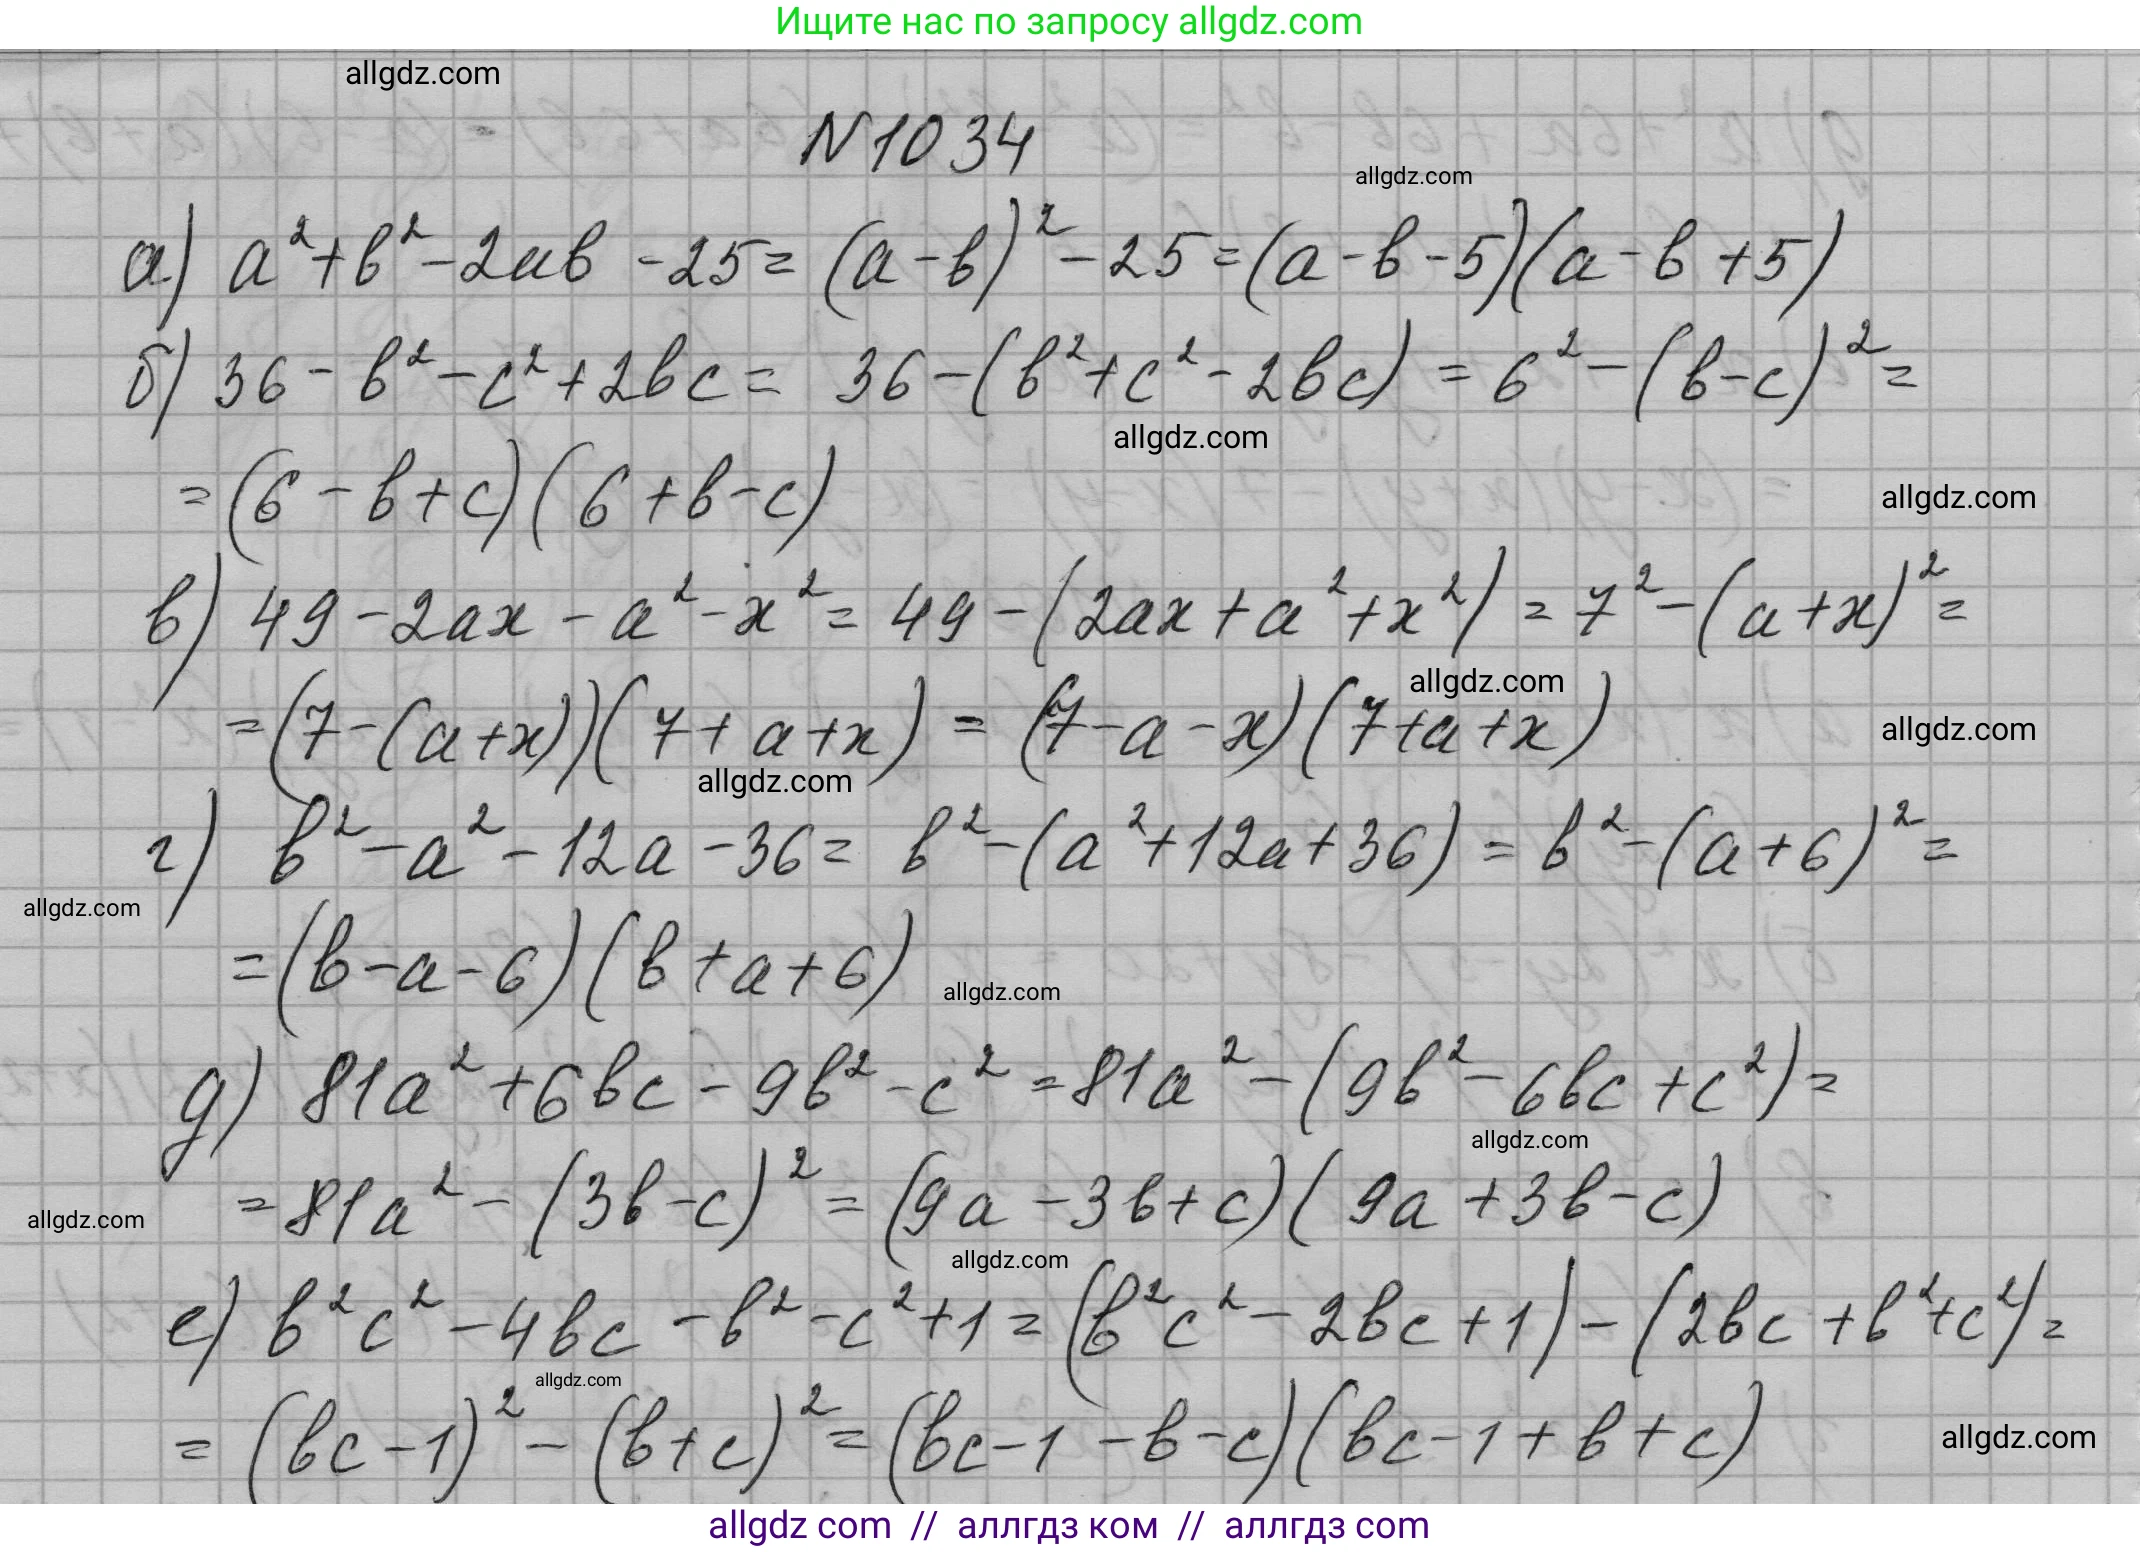 Ищите нас по запросу allgdz.com
allgdz.com
N1034
allgdz.com
а) a²+b²-2ab-25=(a-b)²-25=(a-b-5)(a-b+5)
б) 36-b²-c²+2bc= 36-(b²+c²-2bc)=6²-(b-c)²=
allgdz.com
=(6-b+c)(6+b-c)
allgdz.com
в) 49-2ax-a²-x²=49-(2ax+a²+x²)=7²-(a+x)²=
allgdz.com
=(7-(a+x))(7+a+x)=(7-a-x)(7+a+x)
allgdz.com
allgdz.com
г) b²-a²-12a-36= b²-(a²+12a+36)=b²-(a+6)²=
allgdz.com
=(b-a-6)(b+a+6)
allgdz.com
д) 81a²+6bc-9b²-c²=81a²-(9b²-6bc+c²)=
allgdz.com
=81a²-(3b-c)²=(9a-3b+c)(9a+3b-c)
allgdz.com
allgdz.com
е) b²c²-4bc-b²-c²+1=(b²c²-2bc+1)-(2bc+b²+c²)=
allgdz.com
=(bc-1)²-(b+c)²=(bc-1-b-c)(bc-1+b+c)
allgdz.com
allgdz com // аллгдз ком // аллгдз com